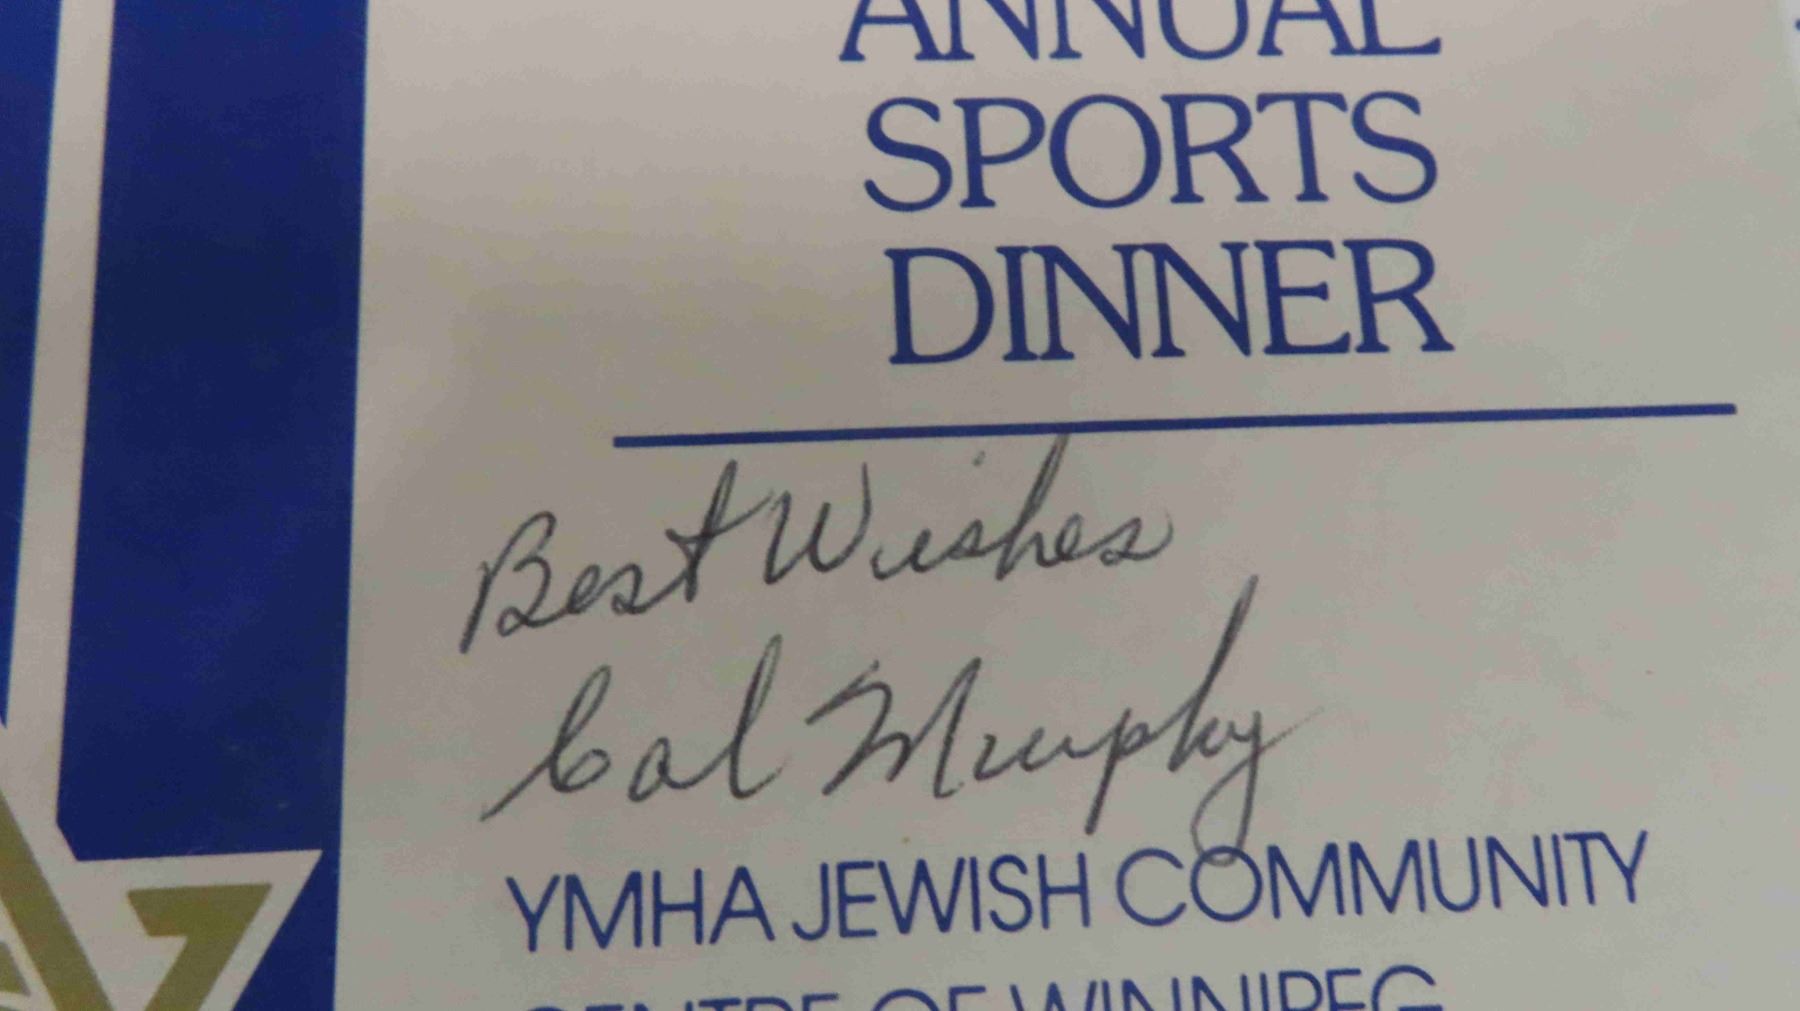 ANNUAL
SPORTS
DINNER
Best Wishes
Cal Murphy
YMHA JEWISH COMMUNITY
CENTRE OF WINNIPEG